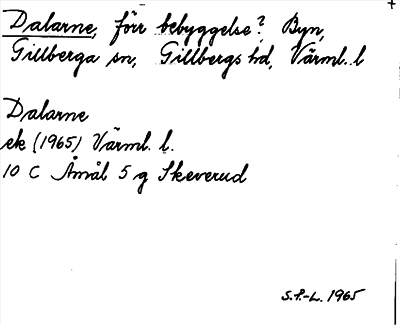 Dalarne, förr bebyggelse? Byn,
Gillberga sn, Gillbergs hd, Värml. l
Dalarne
ek (1965) Värml. l.
10 C Åmål 5 g Skeverud
S.P.-L. 1965